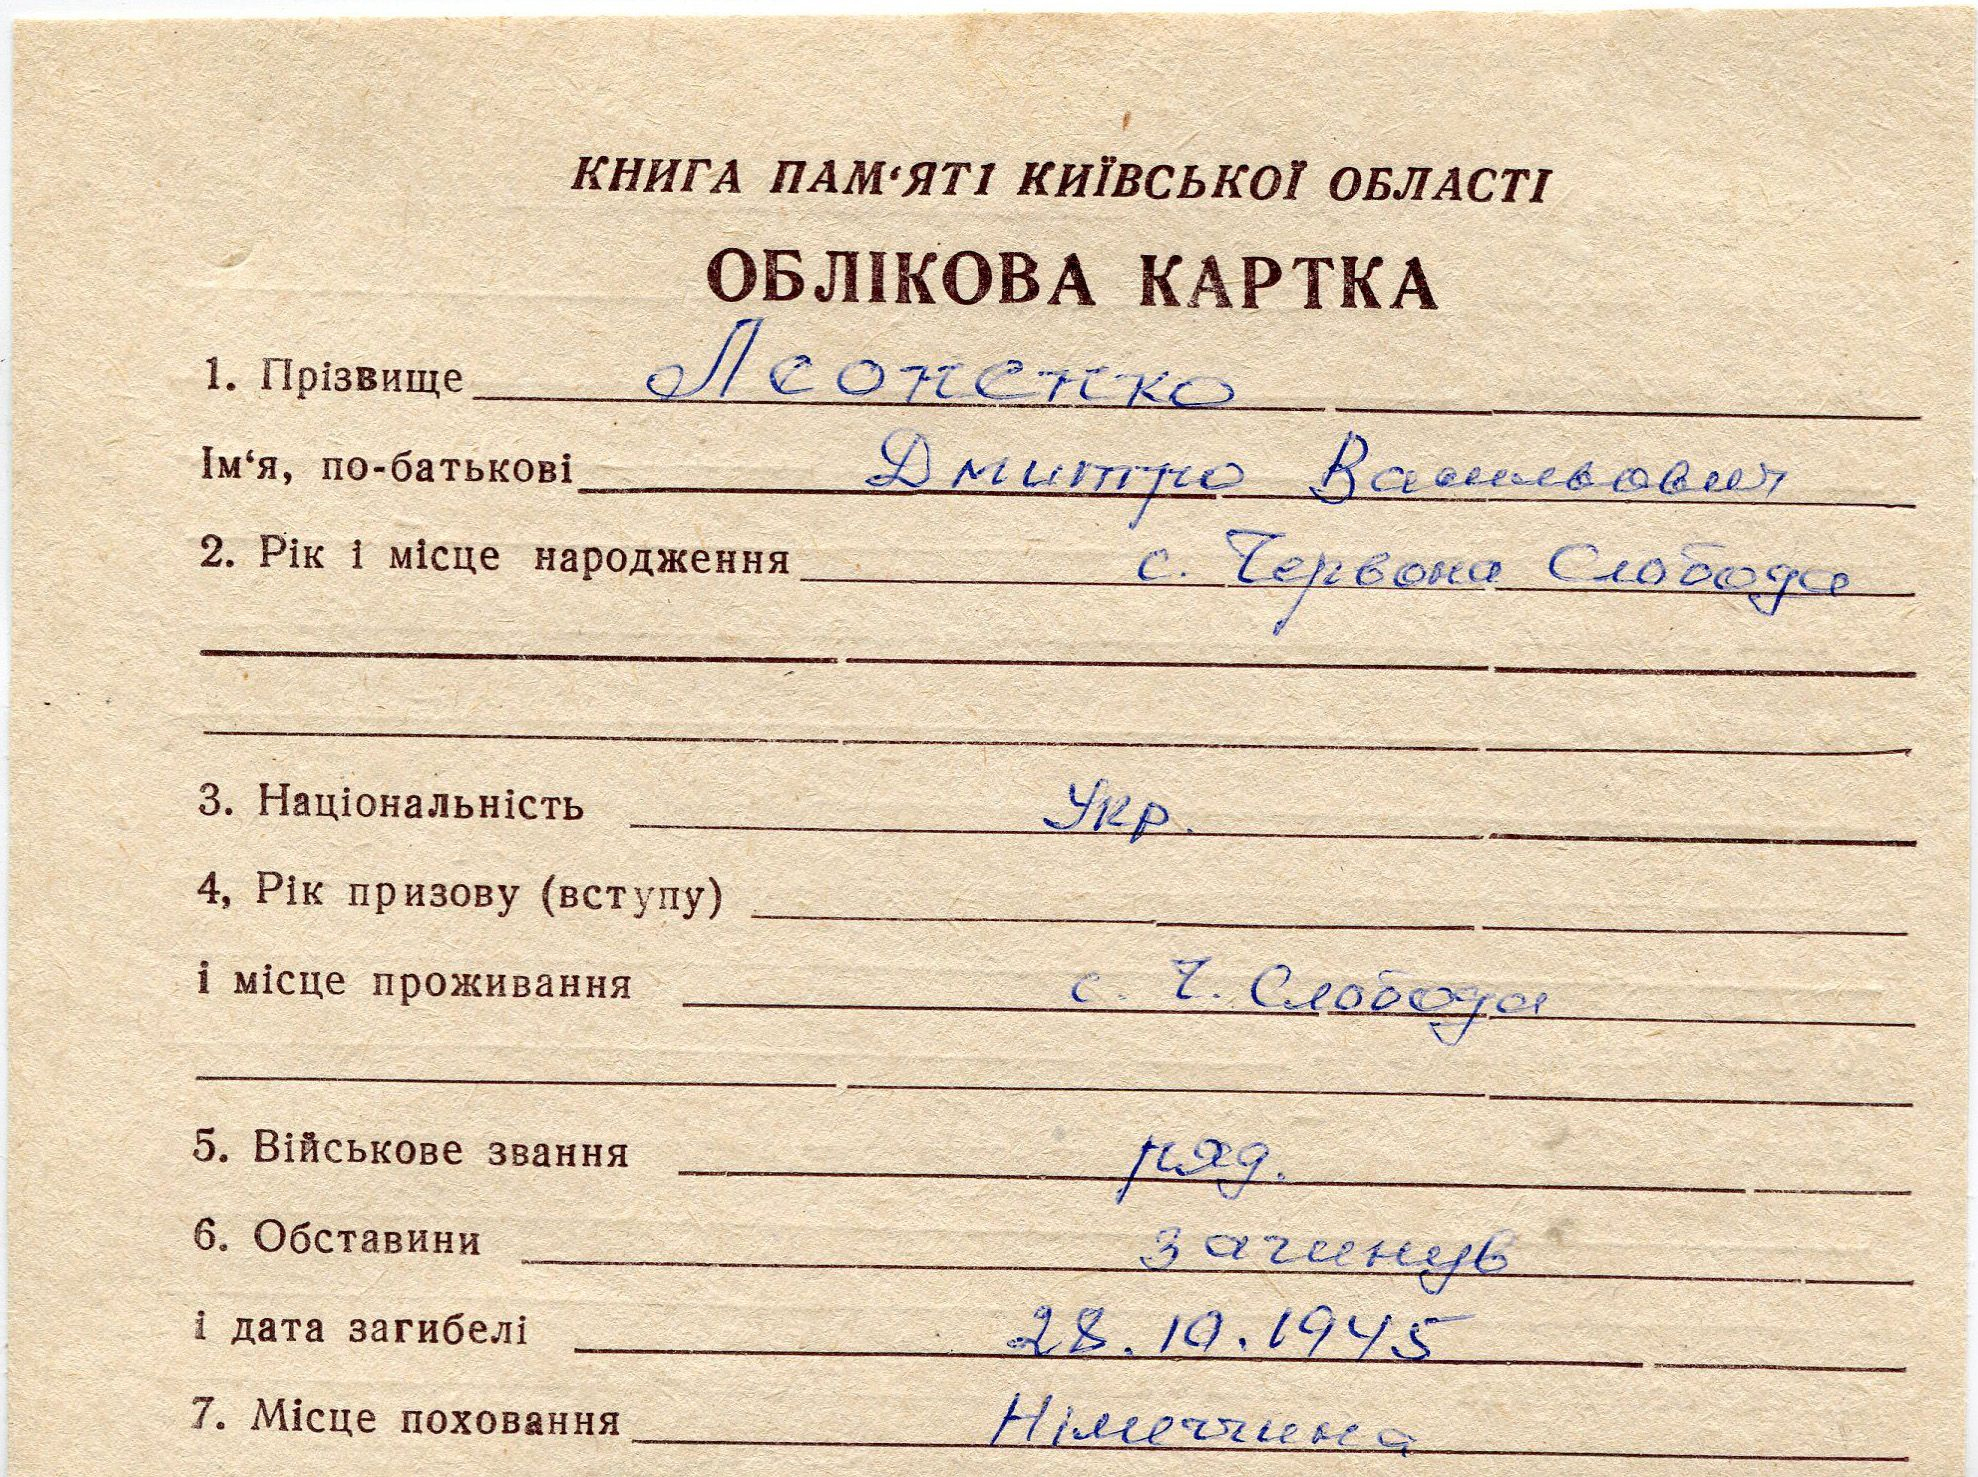 КНИГА ПАМ‘ЯТІ КИЇВСЬКОЇ ОБЛАСТІ
ОБЛІКОВА КАРТКА
1. Прізвище Леоненко
Ім‘я, по-батькові Дмитро Васильович
2. Рік і місце народження с. Червона Слобода
3. Національність Укр.
4, Рік призову (вступу)
і місце проживання с. Ч. Слобода
5. Військове звання ряд.
6. Обставини загинув
і дата загибелі 28.10.1945
7. Місце поховання Німеччина